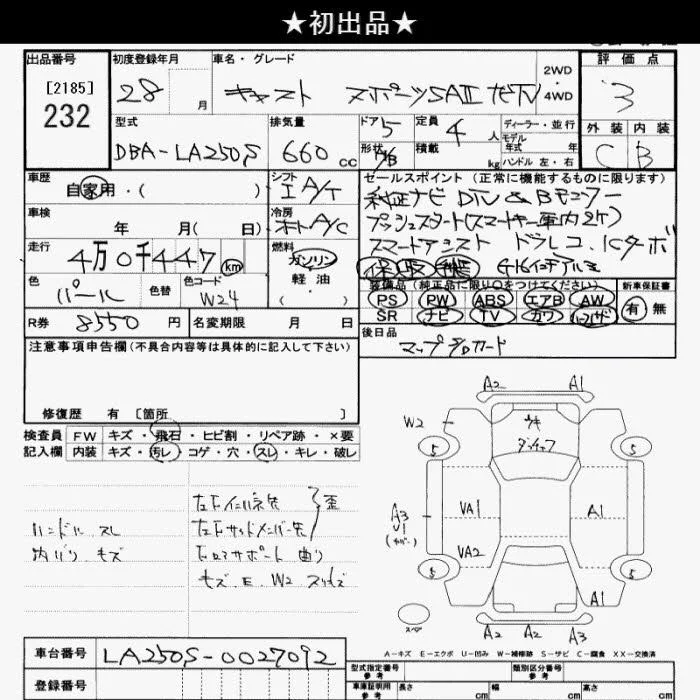 ★初出品★
出品番号
[2185]
232
初度登録年月
28 月
車名・グレード
キャスト スポーツSAⅡ ナビTV
2WD・4WD
評価点
3
外装 内装
C B
型式
DBA-LA250S
排気量
660 cc
ドア 5
形状 5/B
定員 4 人
積載 kg
ディーラー・並行
モデル年式 年
ハンドル 左・右
車歴
自家用・( )
シフト
I A/T
車検
年 月( 日)
冷房
オート A/C
走行
4万0千447 km
燃料
ガソリン
軽油
・( )
色
パール
色替
色コード
W24
R券 8550 円
名変期限 月 日
セールスポイント(正常に機能するものに限ります)
純正ナビ DTV & Bモニター
プッシュスタート(スマートキー車内2ケ)
スマートアシスト ドラレコ. ICターボ
保 取 機 16インチアルミ
装備品(純正品に限り○をつけてください)
PS PW ABS エアB AW
SR ナビ TV カワ
新車保証書
有 無
後日品
マップSDカード
注意事項申告欄(不具合内容等は具体的に記入して下さい)
修復歴 有〔箇所 〕
検査員記入欄
FW キズ・飛石・ヒビ割・リペア跡・×要
内装 キズ・汚レ・コゲ・穴・スレ・キレ・破レ
ハンドル スレ
内バリ キズ
左F インバー先
左F サイドメンバー先 歪
F ロアサポート 曲り
キズ. E. W2 スリキズ
A2 A1
W2
ウキ
タッチアップ
5 5
A3
U1
VA1 A1
VA2
5 5
A1
スペア
A2 A2 A3
A-キズ E-エクボ U-凹み W-補修跡 S-サビ C-腐食 XX-交換済
車台番号
LA250S-0027092
登録番号
型式指定番号 参考
類別区分番号 参考
車庫証明用 参考
長さ cm 幅 cm 高さ cm